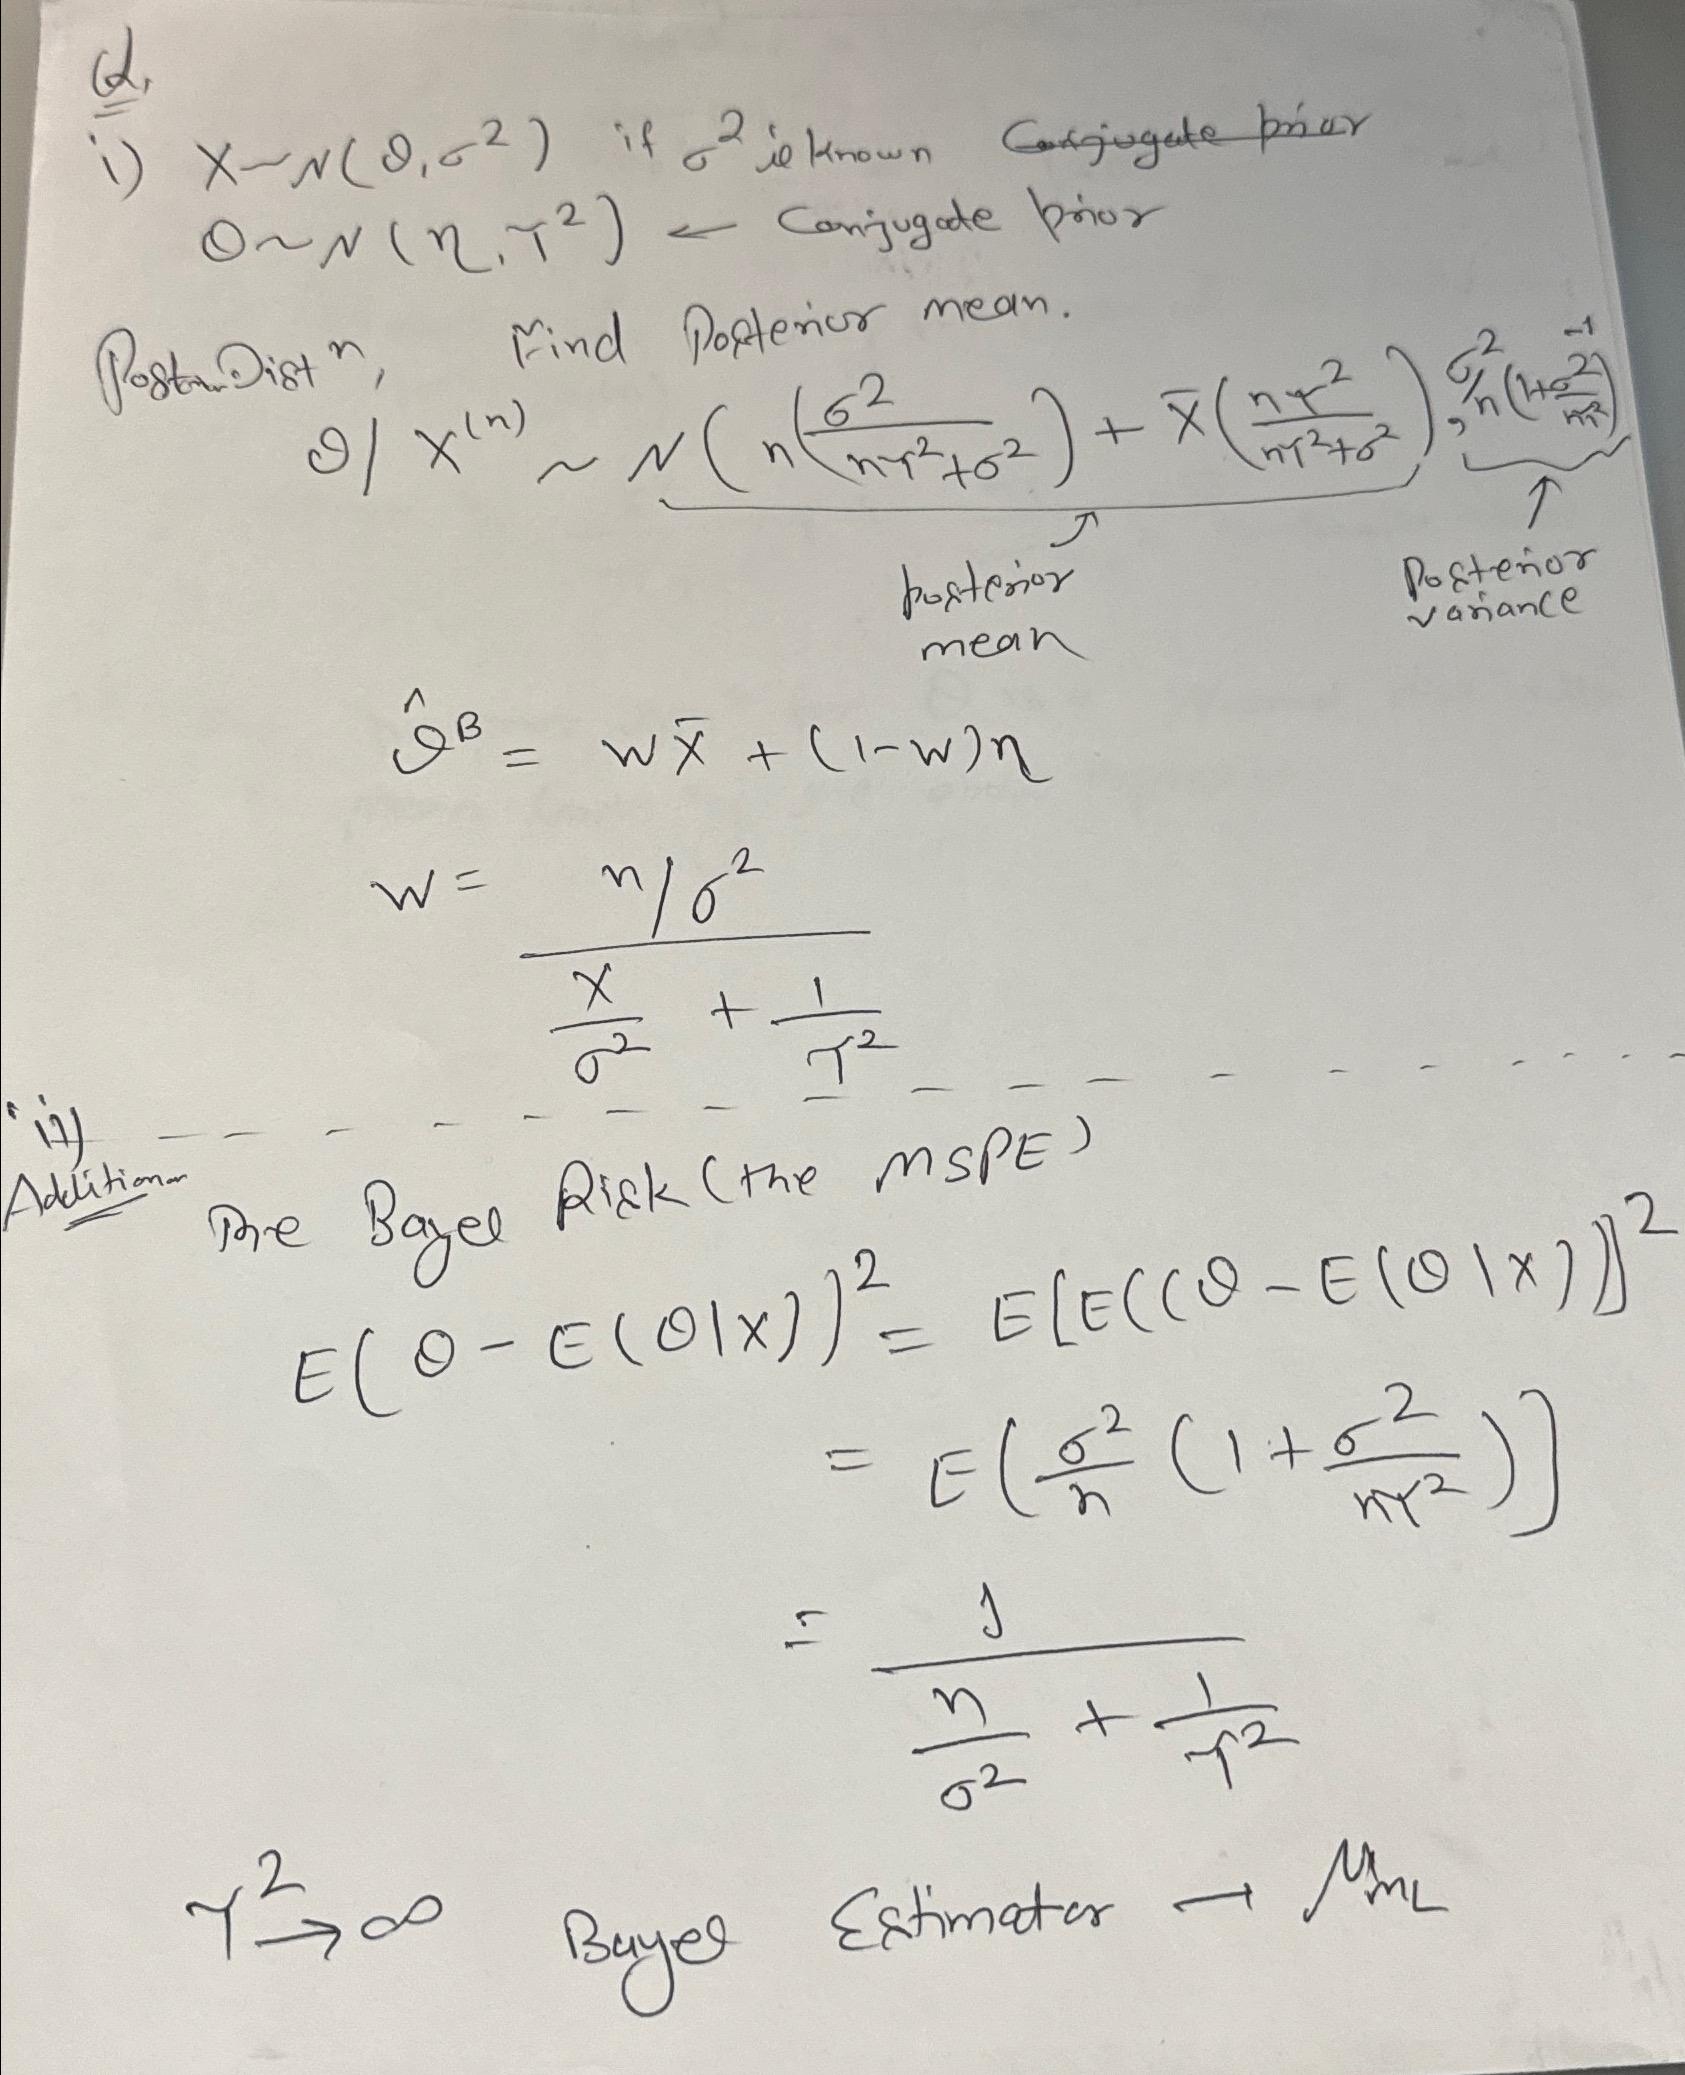 Q.
i) X ~ N(θ, σ²) if σ² is known Conjugate prior
θ ~ N(η, τ²) ← Conjugate prior
Find Posterior mean.
Distⁿ,
θ/X⁽ⁿ⁾ ~ N(η(σ²/(nτ²+σ²)) + X̄(nτ²/(nτ²+σ²)), σ²/n(1+σ²/nτ²)⁻¹)
↑ ↑
posterior mean Posterior variance
θ̂ᴮ = wX̄ + (1-w)η
w = (n/σ²)/(X/σ² + 1/τ²)
ii)
Additional
The Bayes Risk (the MSPE)
E(θ - E(θ|X))² = E[E((θ - E(θ|X))]²
= E(σ²/n (1 + σ²/nτ²)]
= 1/(n/σ² + 1/τ²)
τ² → ∞ Bayes Estimator → μ_ML